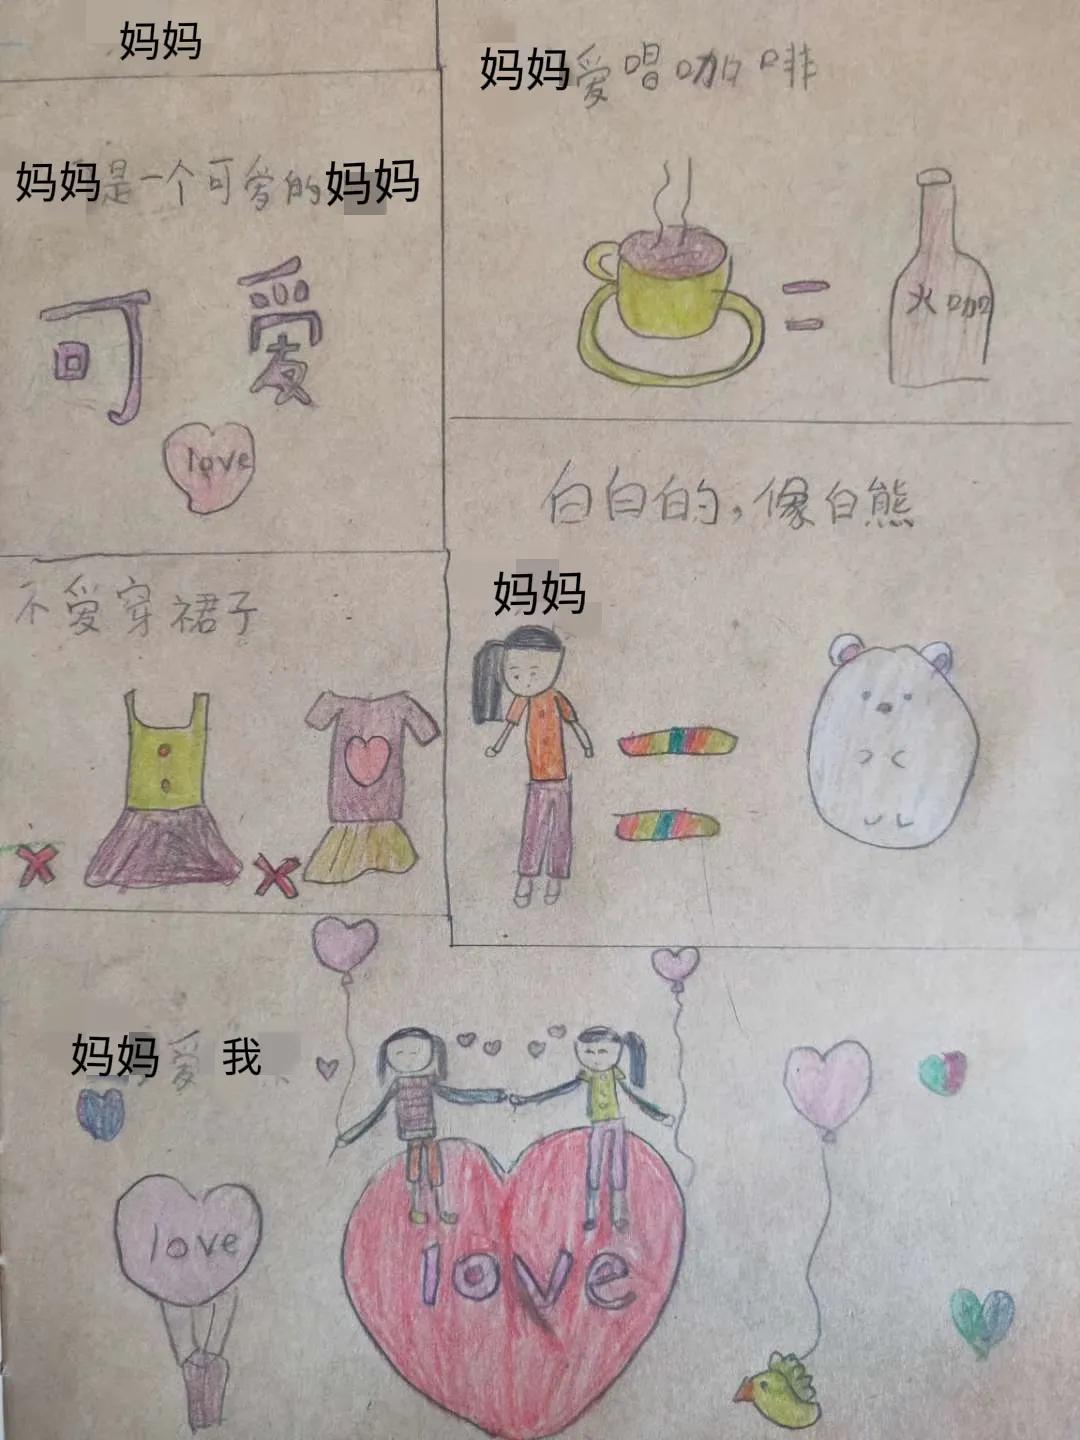 妈妈
妈妈是一个可爱的妈妈
可爱
love
不爱穿裙子
妈妈爱唱咖啡
火咖
白白的，像白熊
妈妈
妈妈爱我
love
love